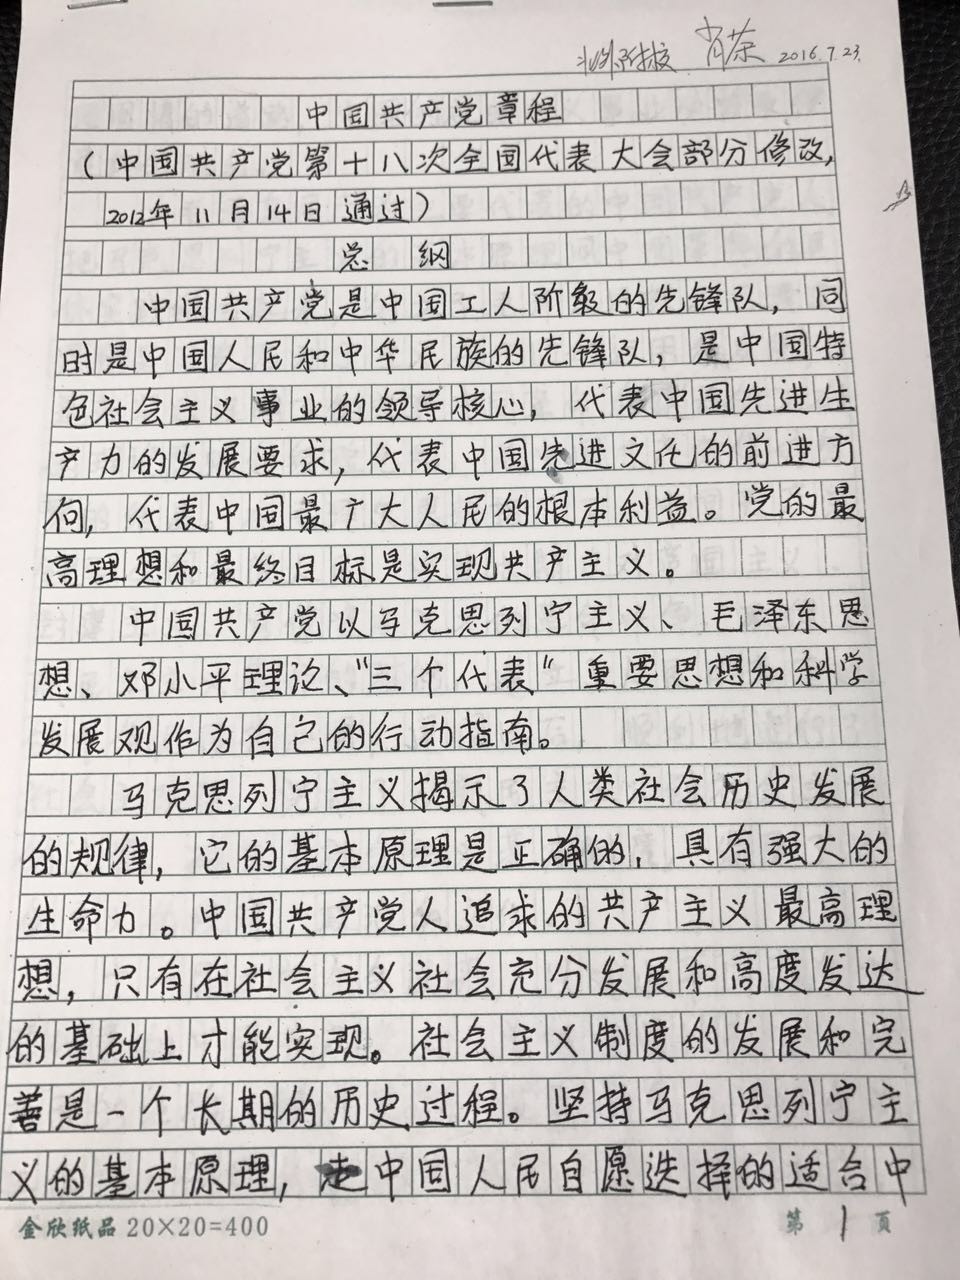 北外附校 肖荣 2016.7.23.
中国共产党章程
(中国共产党第十八次全国代表大会部分修改,
2012年11月14日通过)
总纲
中国共产党是中国工人阶级的先锋队,同
时是中国人民和中华民族的先锋队,是中国特
色社会主义事业的领导核心,代表中国先进生
产力的发展要求,代表中国先进文化的前进方
向,代表中国最广大人民的根本利益。党的最
高理想和最终目标是实现共产主义。
中国共产党以马克思列宁主义、毛泽东思
想、邓小平理论、“三个代表”重要思想和科学
发展观作为自己的行动指南。
马克思列宁主义揭示了人类社会历史发展
的规律,它的基本原理是正确的,具有强大的
生命力。中国共产党人追求的共产主义最高理
想,只有在社会主义社会充分发展和高度发达
的基础上才能实现。社会主义制度的发展和完
善是一个长期的历史过程。坚持马克思列宁主
义的基本原理,走中国人民自愿选择的适合中
金欣纸品 20×20=400 第1页